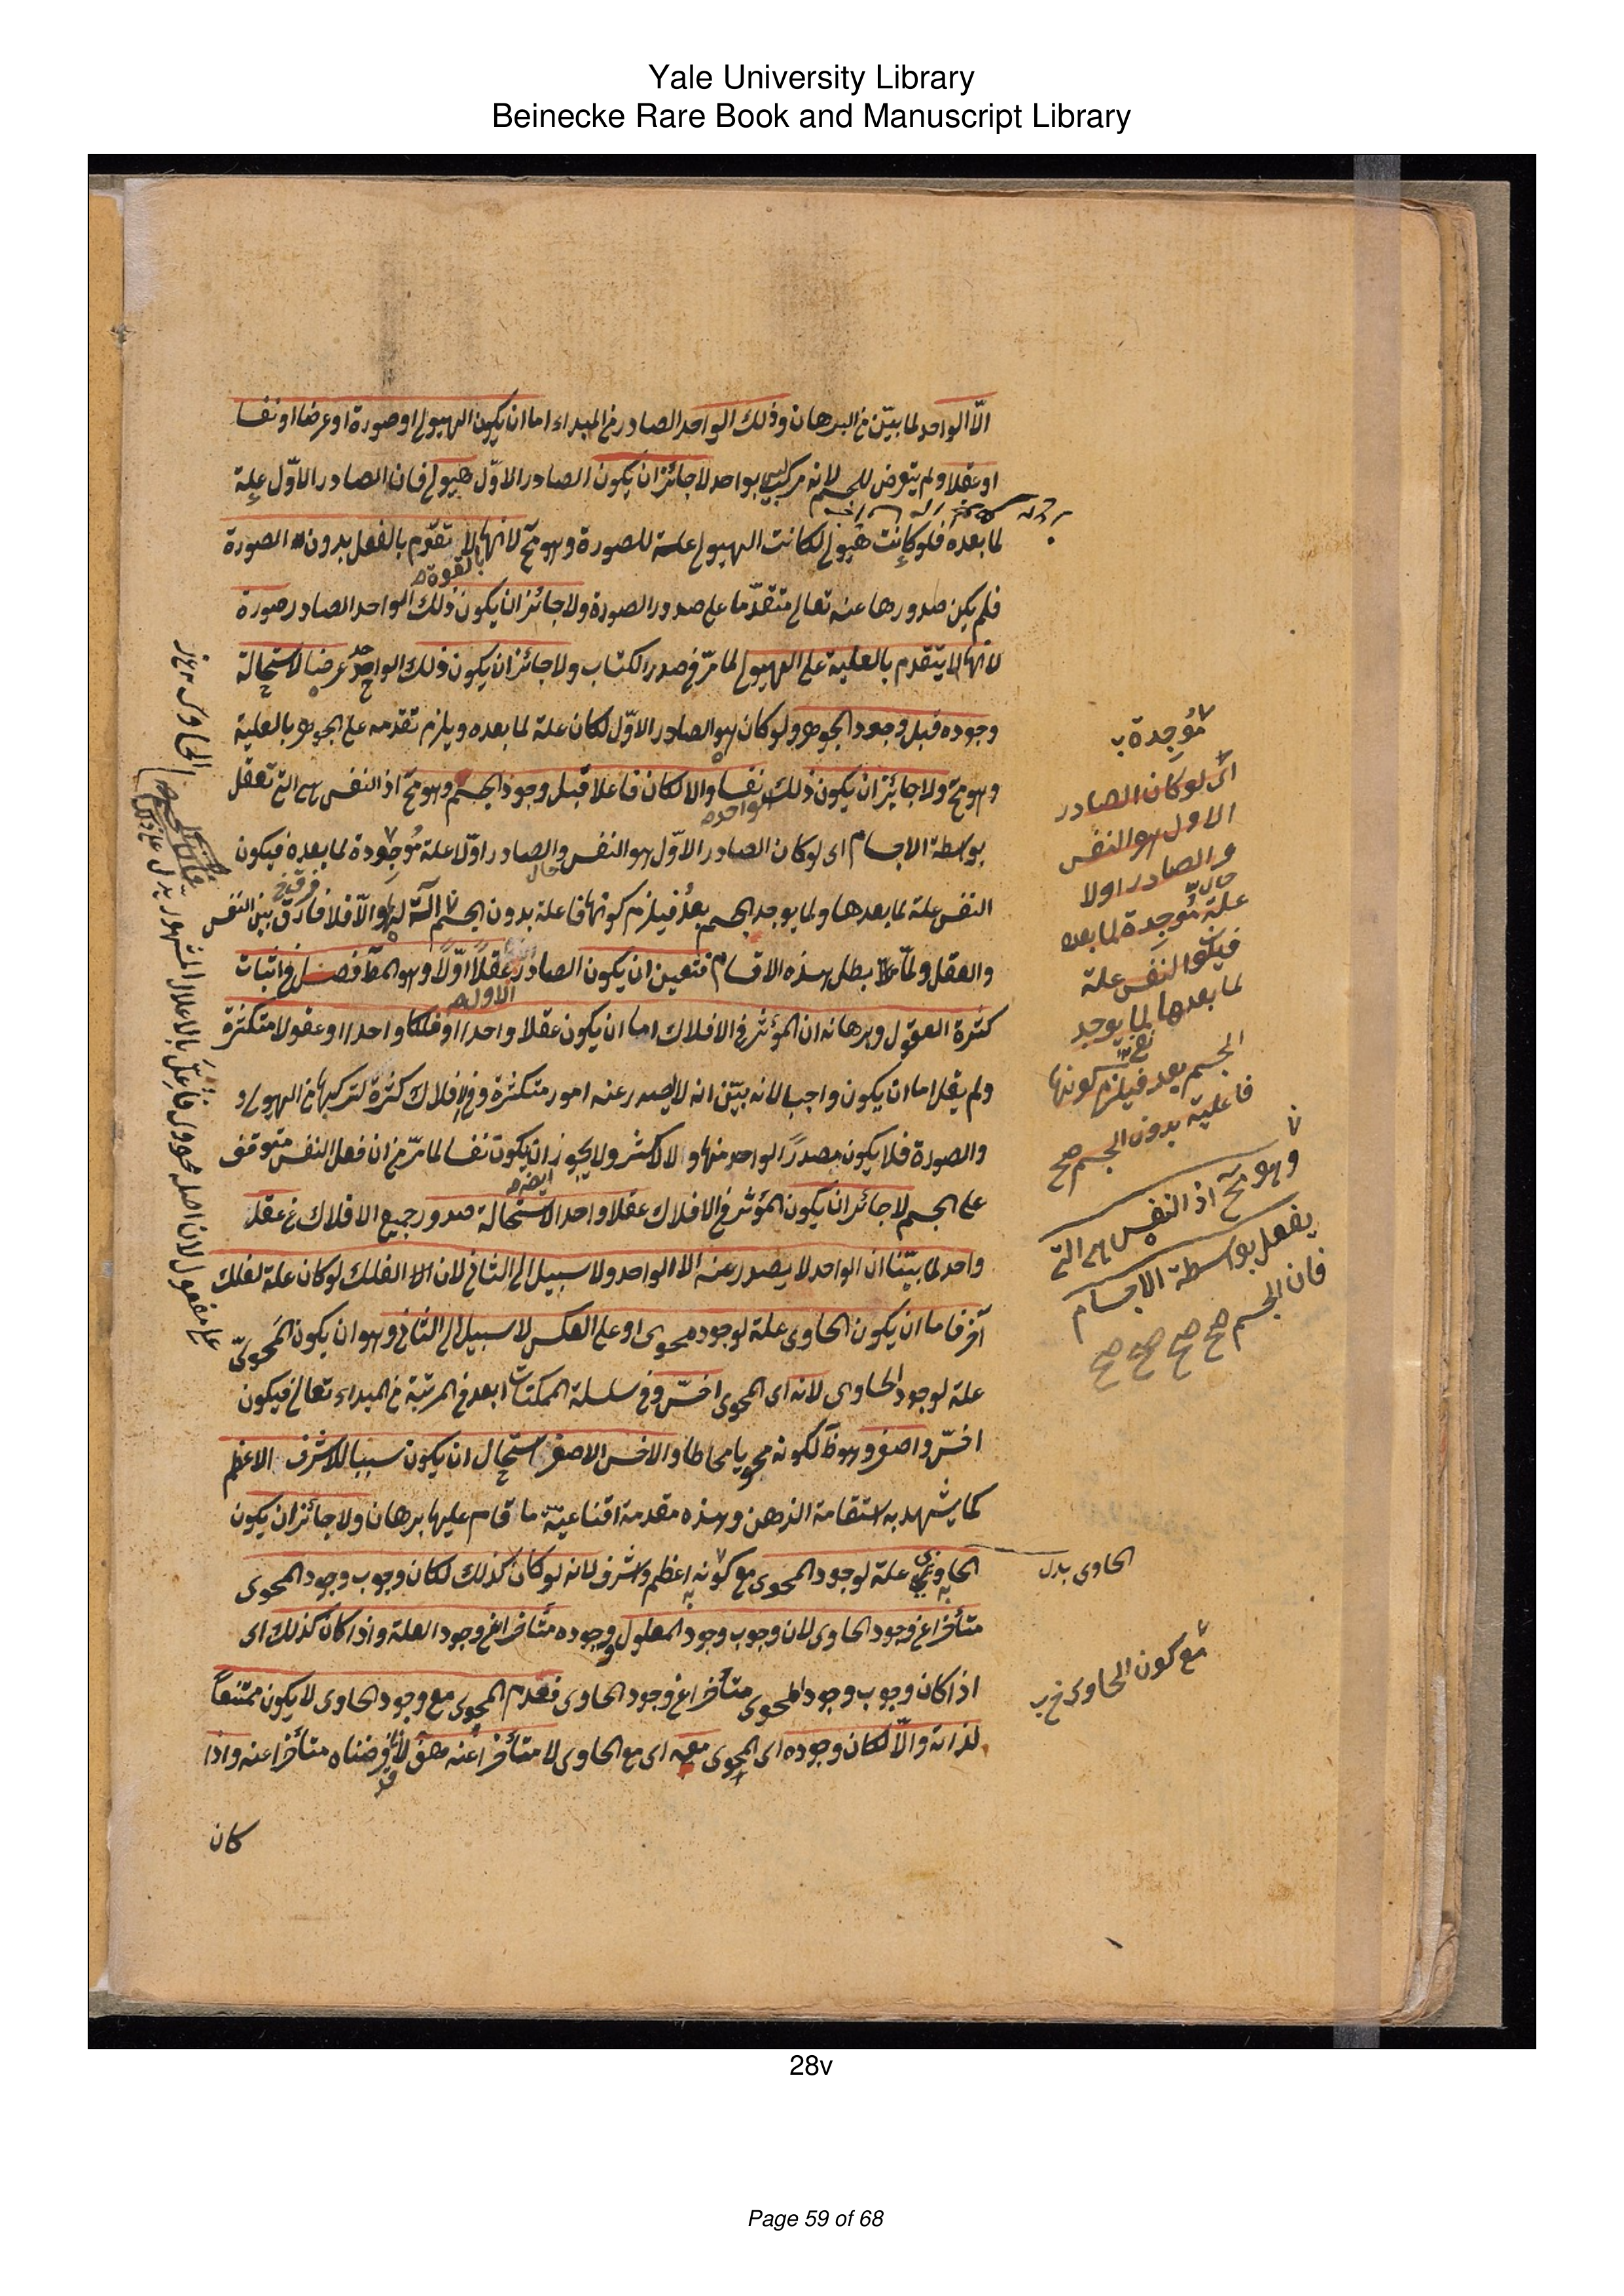 Yale University Library
Beinecke Rare Book and Manuscript Library
الّا الواحد لما بيّن من البرهان وذلك الواحد الصادر من المبداء اما ان يكون الهيولى او صورة او عرضا او نفسا
او عقلا ولم يتعرض للجسم لانه مركب ليس بواحد لا جائز ان يكون الصادر الاوّل هيولى فان الصادر الاوّل علة
لما بعده فلو كانت هيولى لكانت الهيولى علة للصورة وهو مح لانها لا تقوّم بالفعل بدون الصورة
بالقوة
فلم يكن صدورها عنه تعالى متقدّما على صدور الصورة ولا جائز ان يكون ذلك الواحد الصادر صورة
لانها لا يتقدم بالعلية على الهيولى لما مرّ في صدر الكتاب ولا جائز ان يكون ذلك الواحد عرضا لاستحالة
وجوده قبل وجود الجوهر ولو كان هو الصادر الاوّل لكان علة لما بعده ويلزم تقدمه على الجوهر بالعلية
وهو مح ولا جايز ان يكون ذلك نفسا والا لكان فاعلا قبل وجود الجسم وهو مح اذ النفس هى التى تعقل
الواحد
بواسطة الاجسام اى لو كان الصادر الاوّل هو النفس والصادر اوّلا علة مُوجِدة لما بعده فيكون
النفس علة لما بعدها ولما يوجد الجسم بعدُ فيلزم كونها فاعلة بدون الجسم آلة لها والّا فلا فارق بين النفس
والعقل ولمّا بطل هذه الاقسام فتعين ان يكون الصادر عقلاً اوّلاً وهو المط فصل في اثبات
الاول
كثرة العقول وبرهانه ان المؤثر في الافلاك اما ان يكون عقلا واحدا او فلكا واحدا او عقولا متكثرة
ولم يقل اما ان يكون واجب لانه بيّن انه لا يصدر عنه امور متكثرة وفي الافلاك كثرة لتركبها من الهيولى و
والصورة فلا يكون مصدرًا لواحد منها ولا لاكثر ولا يجوز ان يكون نفسا لما مرّ من ان فعل النفس متوقف
ايضا
على الجسم لا جائز ان يكون المؤثر في الافلاك عقلا واحدا لاستحالة صدور جميع الافلاك عن عقل
واحد لما بيّنا ان الواحد لا يصدر عنه الا الواحد ولا سبيل الى الثانى لان الفلك لو كان علة لفلك
آخر فاما ان يكون الحاوى علة لوجود محوى او على العكس لا سبيل الى الثانى وهو ان يكون المَحوىّ
علة لوجود الحاوى لانه اى المحوى اخسّ وفي سلسلة الممكنات ابعد في المرتبة من المبداء تعالى فيكون
اخسّ واصغر وهو ظ لكونه محويا محاطا والاخس الاصغر استحال ان يكون سببا للاشرف الاعظم
كما يشهد به استقامة الذهن وهذه مقدمة اقناعية ما قام عليها برهان ولا جائز ان يكون
الحاوى علة لوجود المحوى مع كونه اعظم واشرف لانه لو كان كذلك لكان وجوب وجود المحوى
متأخرا عن وجود الحاوى لان وجوب وجود المعلول ووجوده متأخرا عن وجود العلة واذا كان كذلك اى
اذا كان وجوب وجود المحوى متأخرا عن وجود الحاوى فعدم المحوى مع وجود الحاوى لا يكون ممتنعاً
لذاته والّا لكان وجوده اى المحوى معه اى مع الحاوى لا متأخرا عنه هف لانا فرضناه متأخرا عنه واذا
كان
مُوجِدة
اى لو كان الصادر
الاول هو النفس
والصادر اولا
علة مُوجدة لما بعده
فيكون النفس علة
لما بعدها لما يوجد
الجسم بعد فيلزم كونها
فاعلية بدون الجسم صح
وهو مح اذ النفس هى التى
يفعل بواسطة الاجسام
فان الجسم صح صح صح صح
الحاوى بدل
مع كون الحاوى
28v
Page 59 of 68